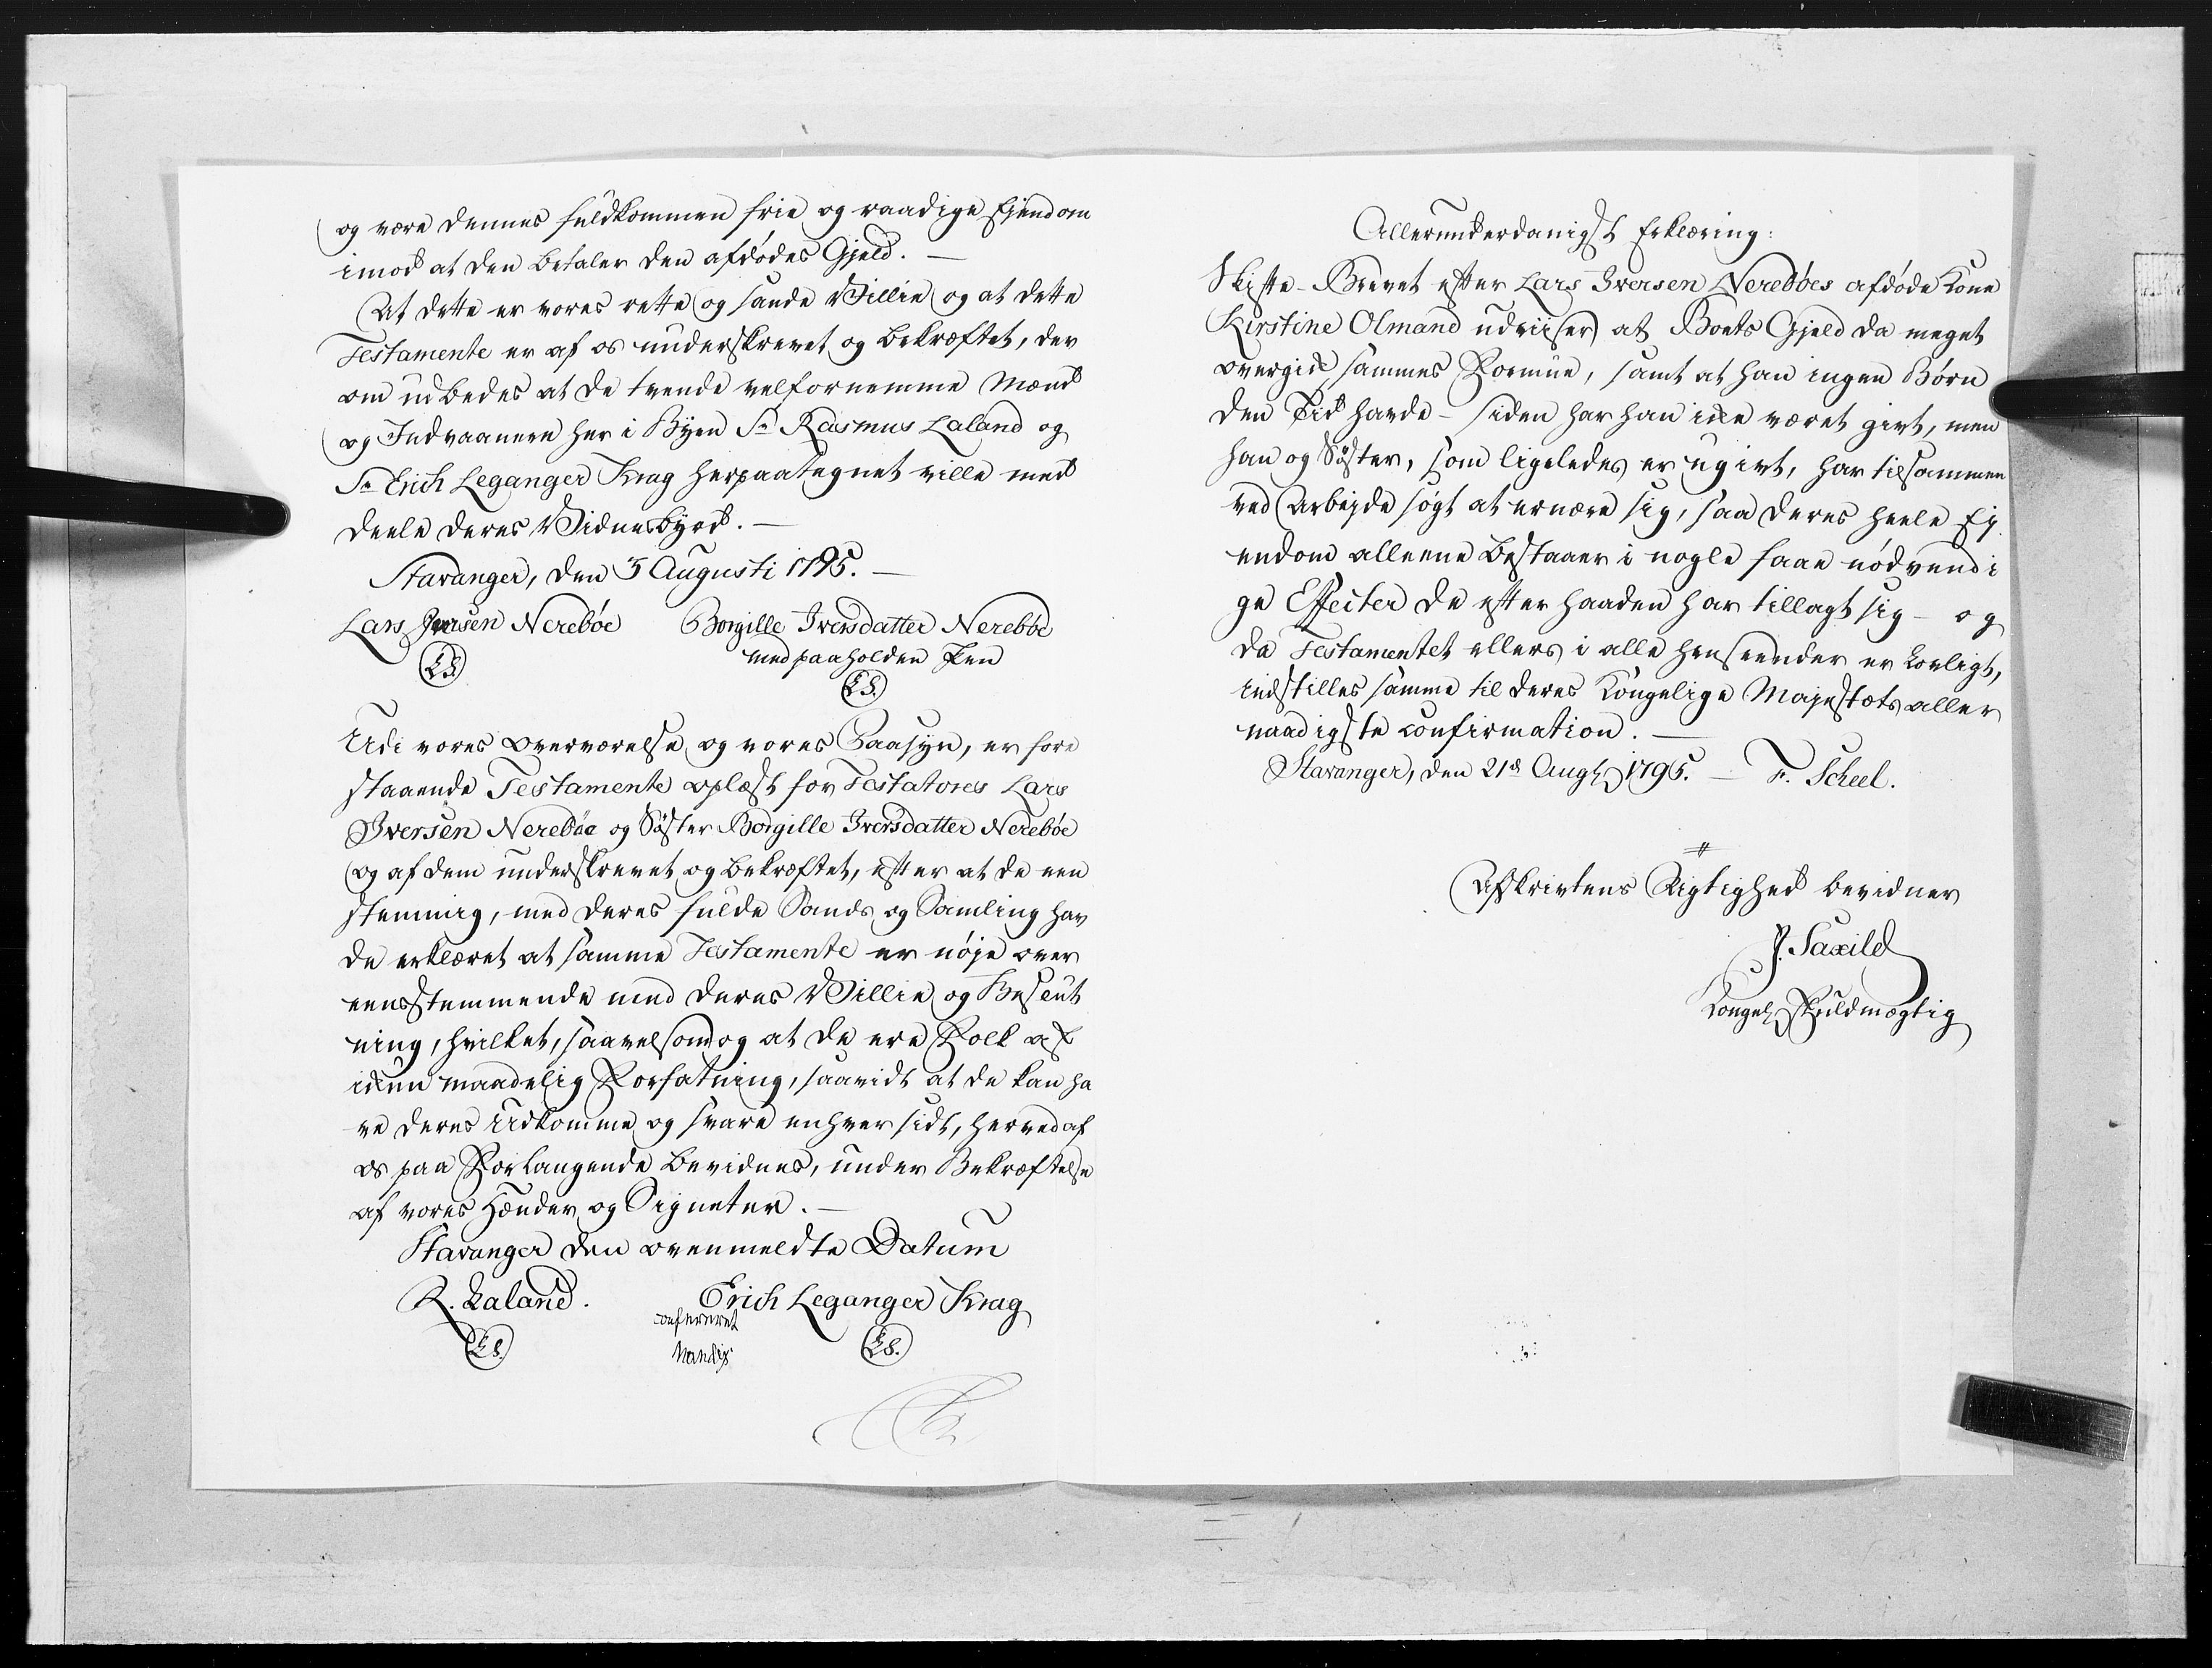 og være dennes fuldkommen frie og raadige Ejendom
imod at den betaler den afdödes Gjeld. —
At dette er vores rette og sande Villie og at dette
Testamente er af os underskrevet og bekræftet, der
om udbedes at de tvende velfornemme Mænd
og Indvaanere her i Byen Sr Rasmus Laland og
Sr Erich Leganger Krag herpaategnet ville med
deele deres Vidnesbyrd. —
Stavanger, den 5 Augusti 1795. —
Lars Iversen Nereböe Borgille Iversdatter Nereböe
med paaholden Pen
(L.S.) (L.S.)
Udi vores Overværelse og vores Paasyn, er fore
staaende Testamente oplæst for Testatores Lars
Iversen Nereböe og Söster Borgille Iversdatter Nereböe
og af dem underskrevet og bekræftet, efter at de een
stemmig, med deres fulde Sands og Samling hav
de erklæret at samme Testamente er nöje over
eensstemmende med deres Villie og Beslut
ning, hvilket, saavelsom og at de ere Folk af
ikkun maadelig Forfatning, saavidt at de kan ha
ve deres Udkomme og svare enhver sidt, herved af
os paa Forlangende bevidnes, under Bekræftelse
af vores Hænder og Signeter. —
Stavanger den ovenmeldte Datum
R. Laland. Erich Leganger Krag
confereret
(L.S.) (L.S.)
Allerunderdanigst Erklæring:
Skifte-Brevet efter Lars Iversen Nereböes afdöde Kone
Kirstine Olmand udviiser at Boets Gjeld da meget
overgik sammes Formue, samt at han ingen Börn
den Tid havde – siden har han ikke været givt, men
han og Söster, som ligeledes er ugivt, har tilsammen
ved Arbejde sögt at ernære sig, saa deres heele Ej
endom alleene bestaaer i nogle faae nödvendi
ge Effecter de efter haanden har tillagt sig – og
da Testamentet ellers i alle henseender er lovligt,
indstilles samme til deres Kongelige Majestæts aller
naadigste confirmation. —
Stavanger, den 21de Augt 1795. — F. Scheel.
Afskrivtens Rigtighed bevidner
P. Saxild
Kongel. Fuldmægtig